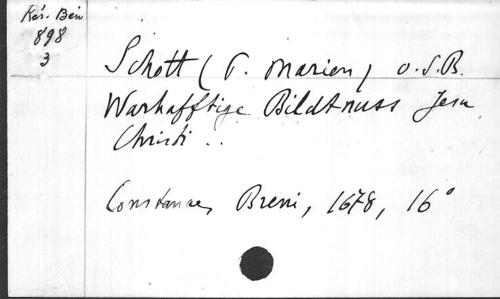 Rés. Bén
898
3
Schott (P. Marien) O.S.B.
Warhafftige Bildtnuss Jesu
Christi ..
Constance, Breni, 1678, 16°